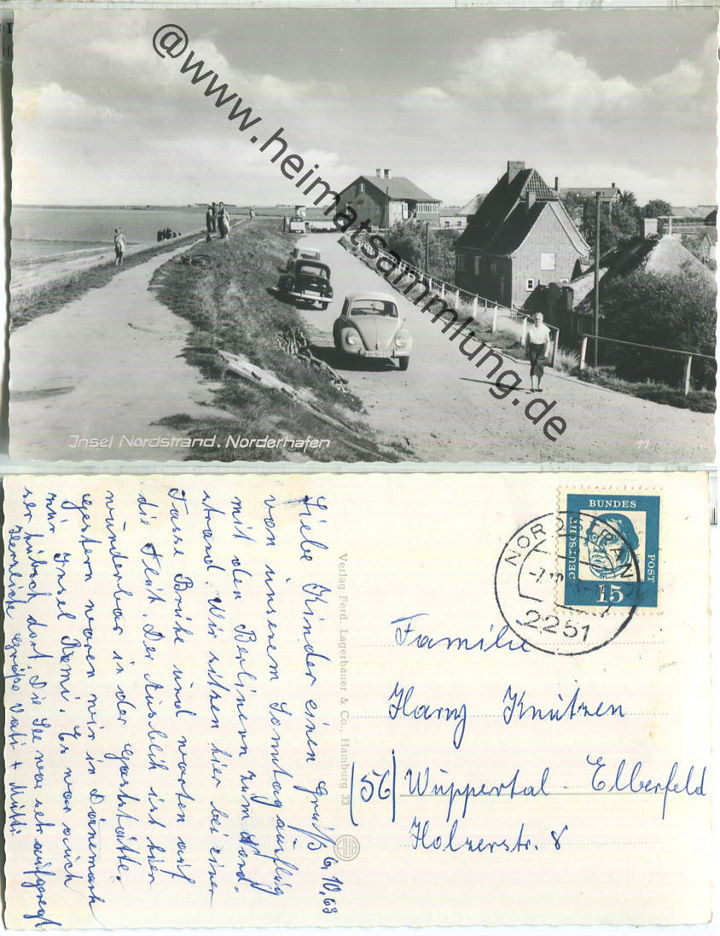 @www.heimatsammlung.de
Insel Nordstrand. Norderhafen
11
6.10.63
Liebe Kinder einen Gruß
von unserem Sonntagausflug
mit den Berlinern zum Nord-
strand. Wir sitzen hier bei einer
Tasse Brühe und warten auf
die Flut. Der Ausblick ist hier
wunderbar in der Gaststätte.
Gestern waren wir in Dänemark
zur Insel Römö. Es war auch
sehr hübsch dort. Die See war sehr aufgeregt
Herzliche Grüße Vati + Mutti
Verlag Ferd. Lagerbauer & Co., Hamburg 33
DEUTSCHE
BUNDES
POST
15
NORDSTRAND
2251
Familie
Harry Knutzen
(56) Wuppertal-Elberfeld
Holzerstr. 8